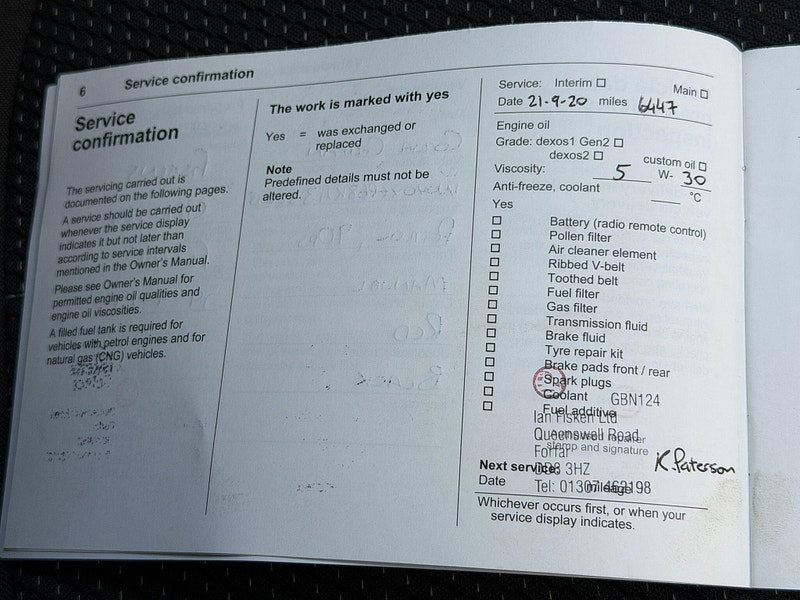 6 Service confirmation
Service
confirmation
The servicing carried out is
documented on the following pages.
A service should be carried out
whenever the service display
indicates it but not later than
according to service intervals
mentioned in the Owner's Manual.
Please see Owner's Manual for
permitted engine oil qualities and
engine oil viscosities.
A filled fuel tank is required for
vehicles with petrol engines and for
natural gas (CNG) vehicles.
The work is marked with yes
Yes = was exchanged or
replaced
Note
Predefined details must not be
altered.
Service: Interim ☐ Main ☐
Date 21-9-20 miles 6447
Engine oil
Grade: dexos1 Gen2 ☐
dexos2 ☐ custom oil ☐
Viscosity: 5 W- 30
Anti-freeze, coolant °C
Yes
☐ Battery (radio remote control)
☐ Pollen filter
☐ Air cleaner element
☐ Ribbed V-belt
☐ Toothed belt
☐ Fuel filter
☐ Gas filter
☐ Transmission fluid
☐ Brake fluid
☐ Tyre repair kit
☐ Brake pads front / rear
☐ Spark plugs
☐ Coolant GBN124
☐ Fuel additive
Ian Fisken Ltd
Queenswell Road
repairer
stamp and signature
Forfar
K.Paterson
Next service:
DD8 3HZ
Date mileage
Tel: 01307 462198
Whichever occurs first, or when your
service display indicates.